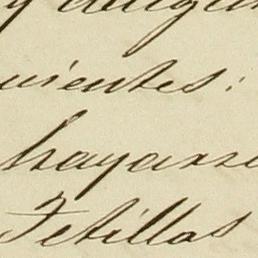 y dilig
uientes:
hayanse
Tetillas